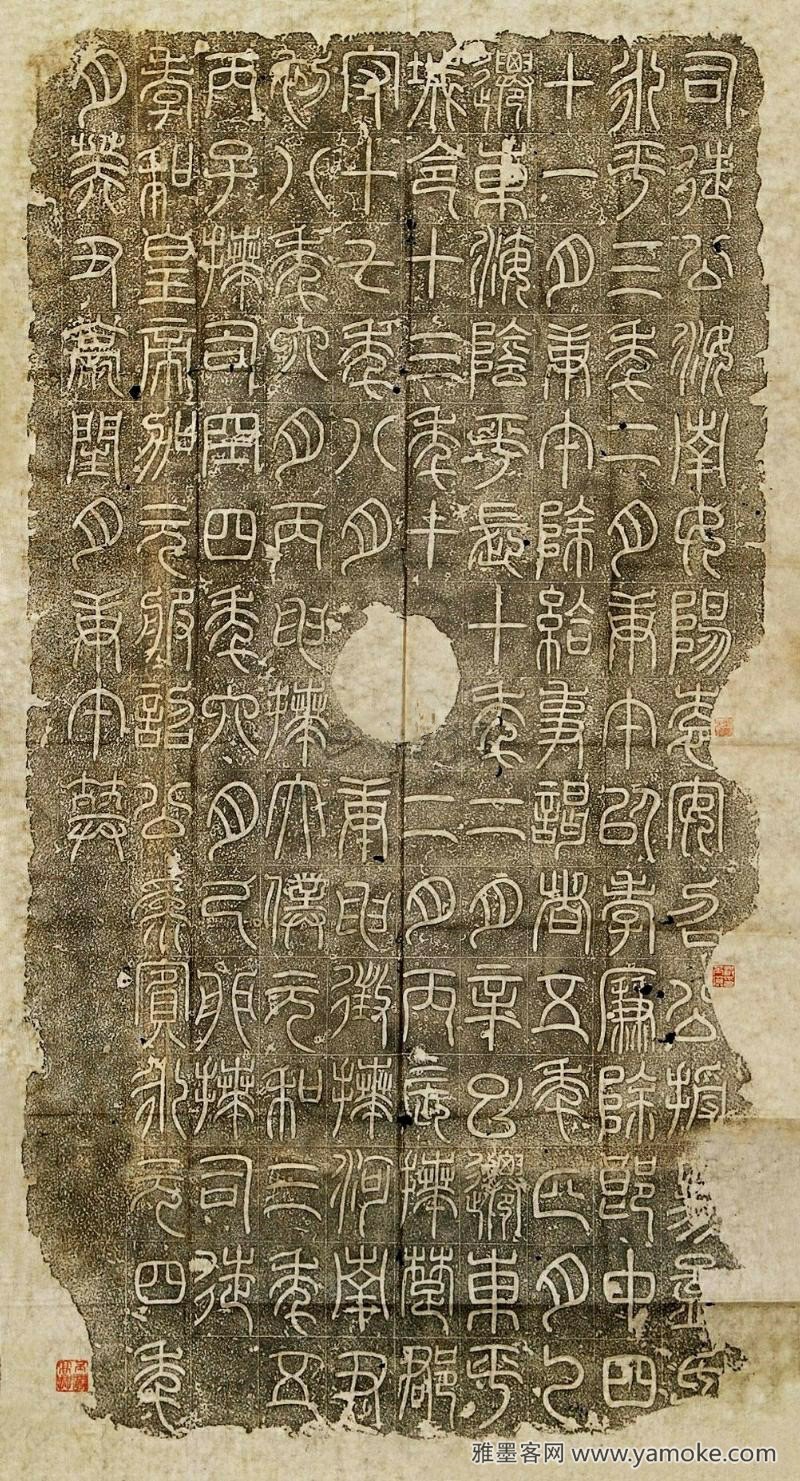 司徒公汝南女陽袁安召公授易孟氏
永平三年二月庚午以孝廉除郎中四
十一月庚午除給事謁者五年四月乙
遷東海陰平長十年二月辛巳遷東平
城令十三年十二月丙辰拜楚郡
守十七年八月庚申徵拜河南尹
初八年六月丙申拜太僕元和三年五
丙子拜司空四年六月己卯拜司徒
孝和皇帝加元服詔公為賓永元四年
月癸丑薨閏月庚午葬
雅墨客网 www.yamoke.com